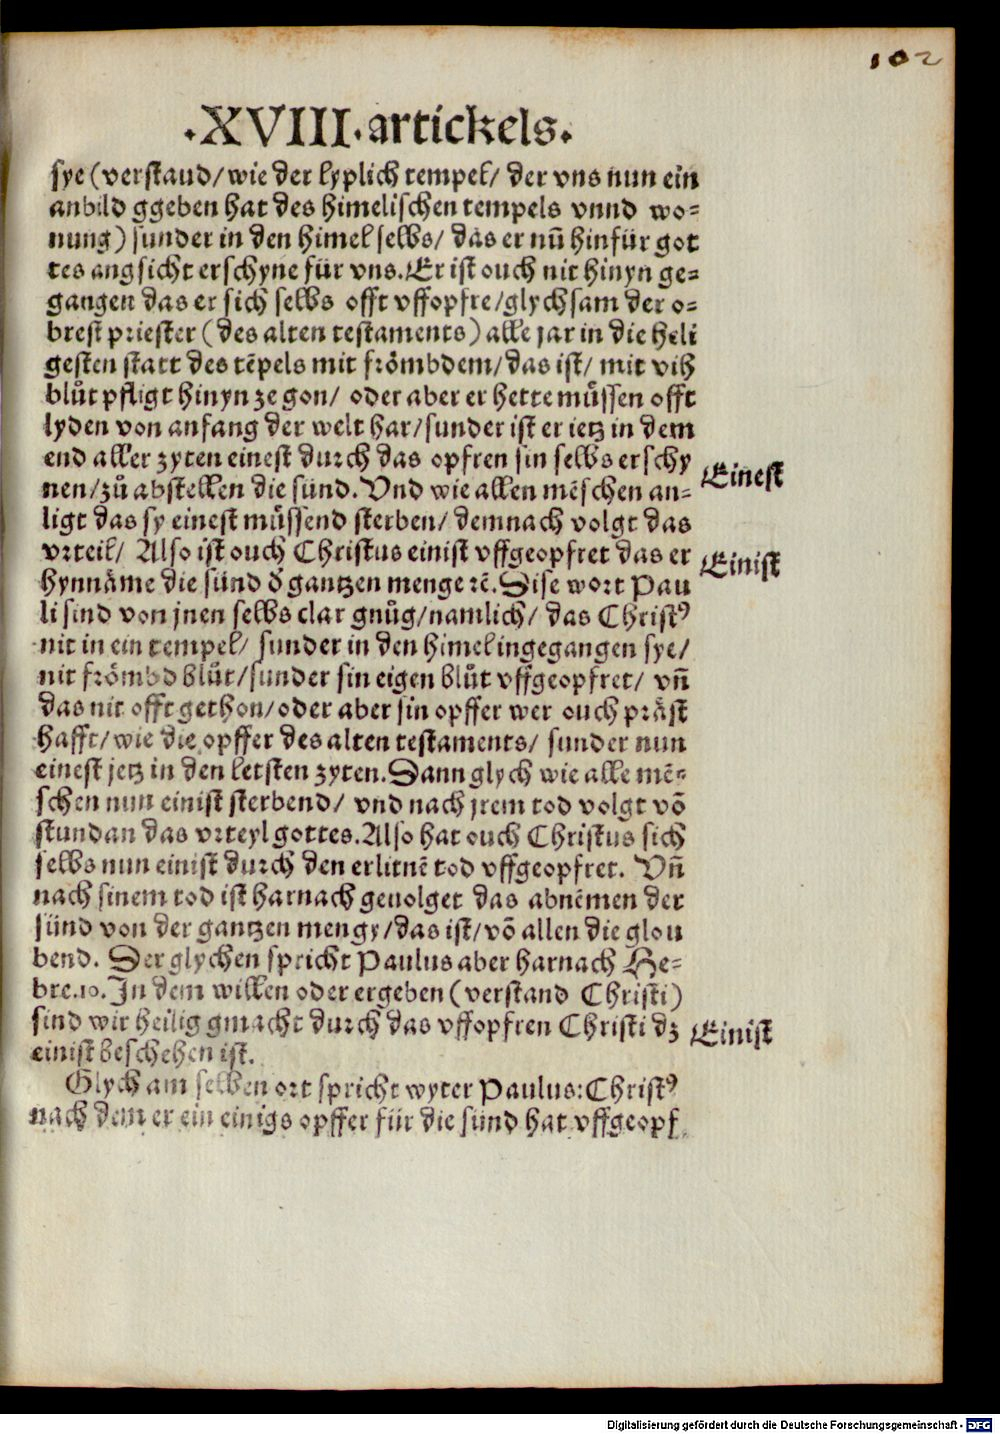 102
·XVIII·artickels.
sye (verstand/ wie der lyplich tempel/ der vns nun ein
anbild ggeben hat des himelischen tempels vnnd wo-
nung) sunder in den himel selbs/ das er nũ hinfür got
tes angsicht erschyne für vns. Er ist ouch nit hinyn ge-
gangen das er sich selbs offt vffopfre/ glychsam der o-
brest priester (des alten testaments) alle jar in die heli
gesten statt des tẽpels mit frömbdem/ das ist/ mit vih
blůt pfligt hinyn ze gon/ oder aber er hette müssen offt
lyden von anfang der welt har/ sunder ist er ietz in dem
end aller zyten einest durch das opfren sin selbs erschy
Einest
nen/ zů abstellen die sünd. Vnd wie allen mẽschen an-
ligt das sy einest müssend sterben/ demnach volgt das
vrteil/ Also ist ouch Christus einist vffgeopfret das er
Einist
hynnäme die sünd d̕ gantzen menge ꝛc̃. Dise wort Pau
li sind von jnen selbs clar gnůg/ namlich/ das Christꝰ
nit in ein tempel/ sunder in den himel ingegangen sye/
nit frömbd blůt/ sunder sin eigen blůt vffgeopfret/ vñ
das nit offt gethon/ oder aber sin opffer wer ouch präst
hafft/ wie die opffer des alten testaments/ sunder nun
einest jetz in den letsten zyten. Dann glych wie alle mẽ-
schen nun einist sterbend/ vnd nach jrem tod volgt võ
stundan das vrteyl gottes. Also hat ouch Christus sich
selbs nun einist durch den erlitnẽ tod vffgeopfret. Vñ
nach sinem tod ist harnach geuolget das abnẽmen der
sünd von der gantzen mengy/ das ist/ võ allen die glou
bend. Der glychen spricht Paulus aber harnach He-
bre.10. In dem willen oder ergeben (verstand Christi)
sind wir heilig gmacht durch das vffopfren Christi dz
Einist
einist beschehen ist.
Glych am selben ort spricht wyter Paulus: Christꝰ
nach dem er ein einigs opffer für die sünd hat vffgeopf
Digitalisierung gefördert durch die Deutsche Forschungsgemeinschaft - DFG